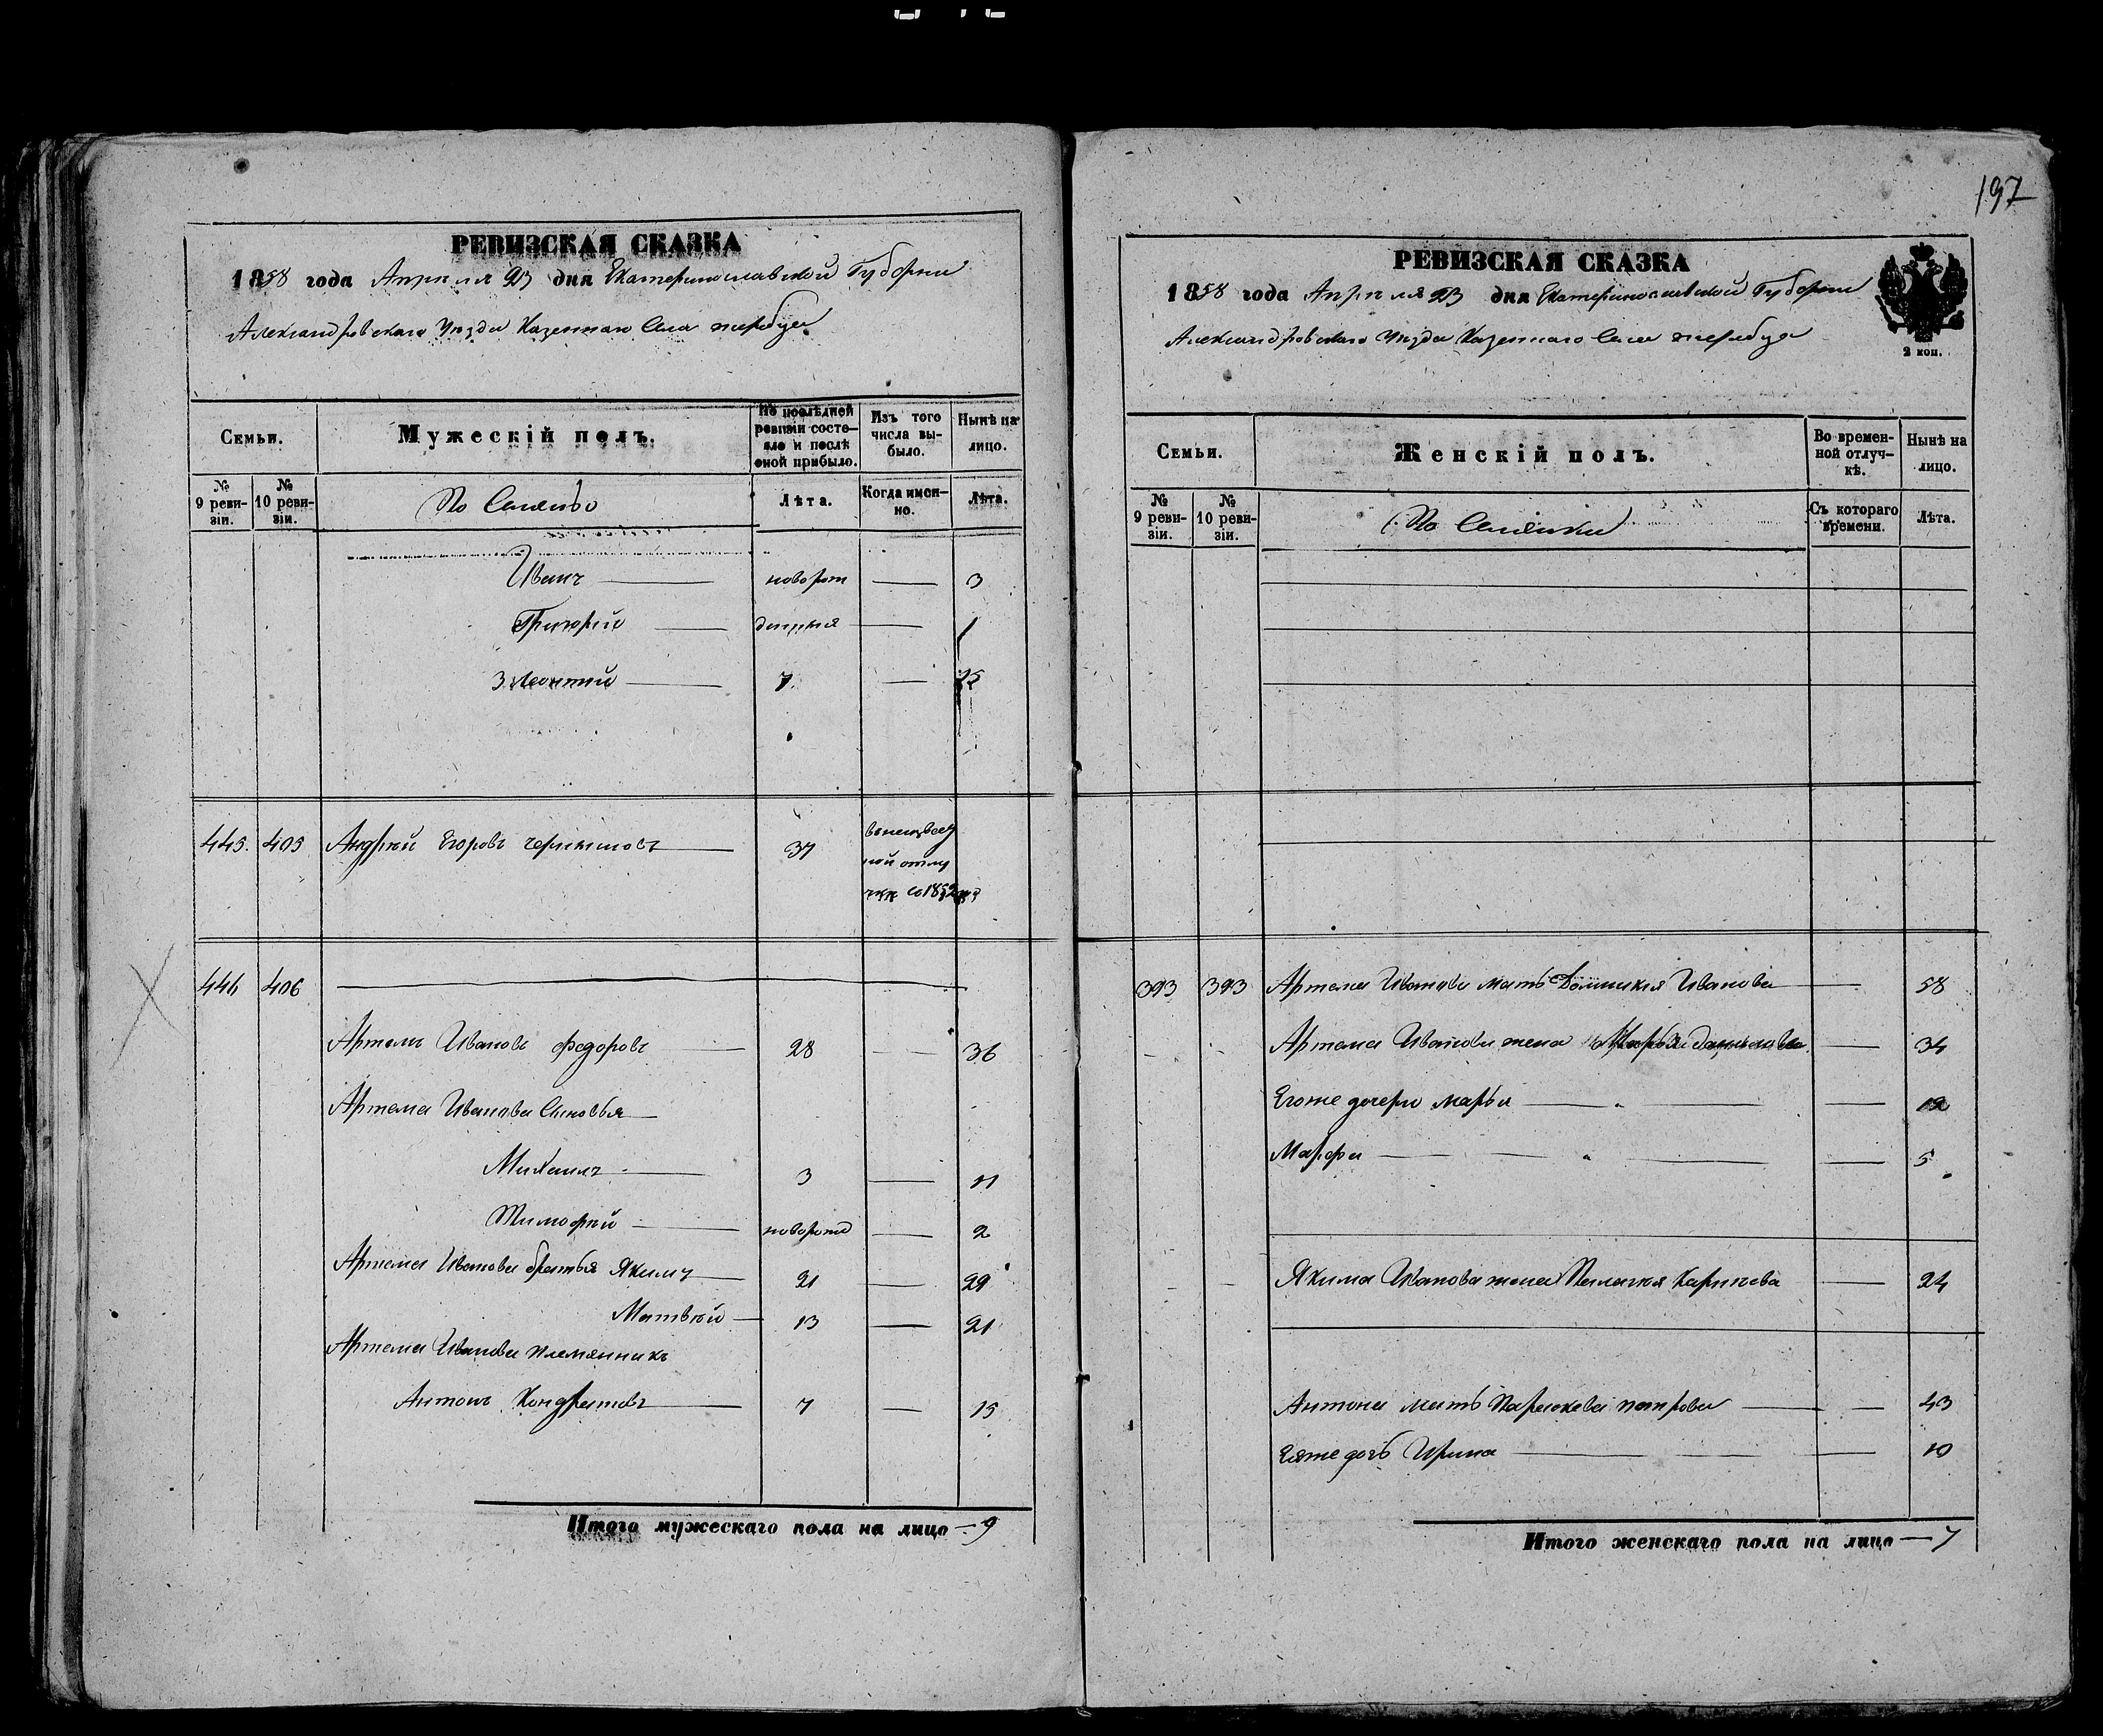 197
РЕВИЗСКАЯ СКАЗКА
1858 года Апреля 23 дня Екатеринославской Губернии
Александровскаго Уезда Казеннаго Села жеребца
Семьи.
Мужескій полъ.
По послѣдней ревизіи состояло и послѣ оной прибыло.
Изъ того числа выбыло.
Нынѣ на лицо.
№ 9 ревизіи.
№ 10 ревизіи.
Лѣта.
Когда именно.
Лѣта.
Иванъ новорож 3
Григорій денныя 1
3 Леонтий 7 15
445. 405 Андрей Егоровъ 37 в неизвест
ной отлу
чке со 1852
446 406
Артемъ Ивановъ федоровъ 28 36
Артема Иванова Сыновья
Михаилъ 3 11
Тимофей новорожд 2
Артема Иванова братья Якимъ 21 29
Матвей 13 21
Артема Иванова племянникъ
Антонъ Кондратовъ 7 15
Итого мужескаго пола на лицо — 9
РЕВИЗСКАЯ СКАЗКА
1858 года Апреля 23 дня Екатеринославской Губернии
Александровскаго Уезда Казеннаго Села жеребца
2 коп.
Семьи.
Женскій полъ.
Во временной отлучкѣ.
Нынѣ на лицо.
№ 9 ревизіи.
№ 10 ревизіи.
Съ котораго времени.
Лѣта.
393 393 Артема Иванова мать Домникия Иванова 58
Артема Иванова жена Марья Данилова 34
Егоже дочери марья 12
Марфа 5
Якима Иванова жена Пелагия Карпова 24
Антона мать Параскева петрова 43
Еяже дочь Ирина 10
Итого женскаго пола на лицо — 7